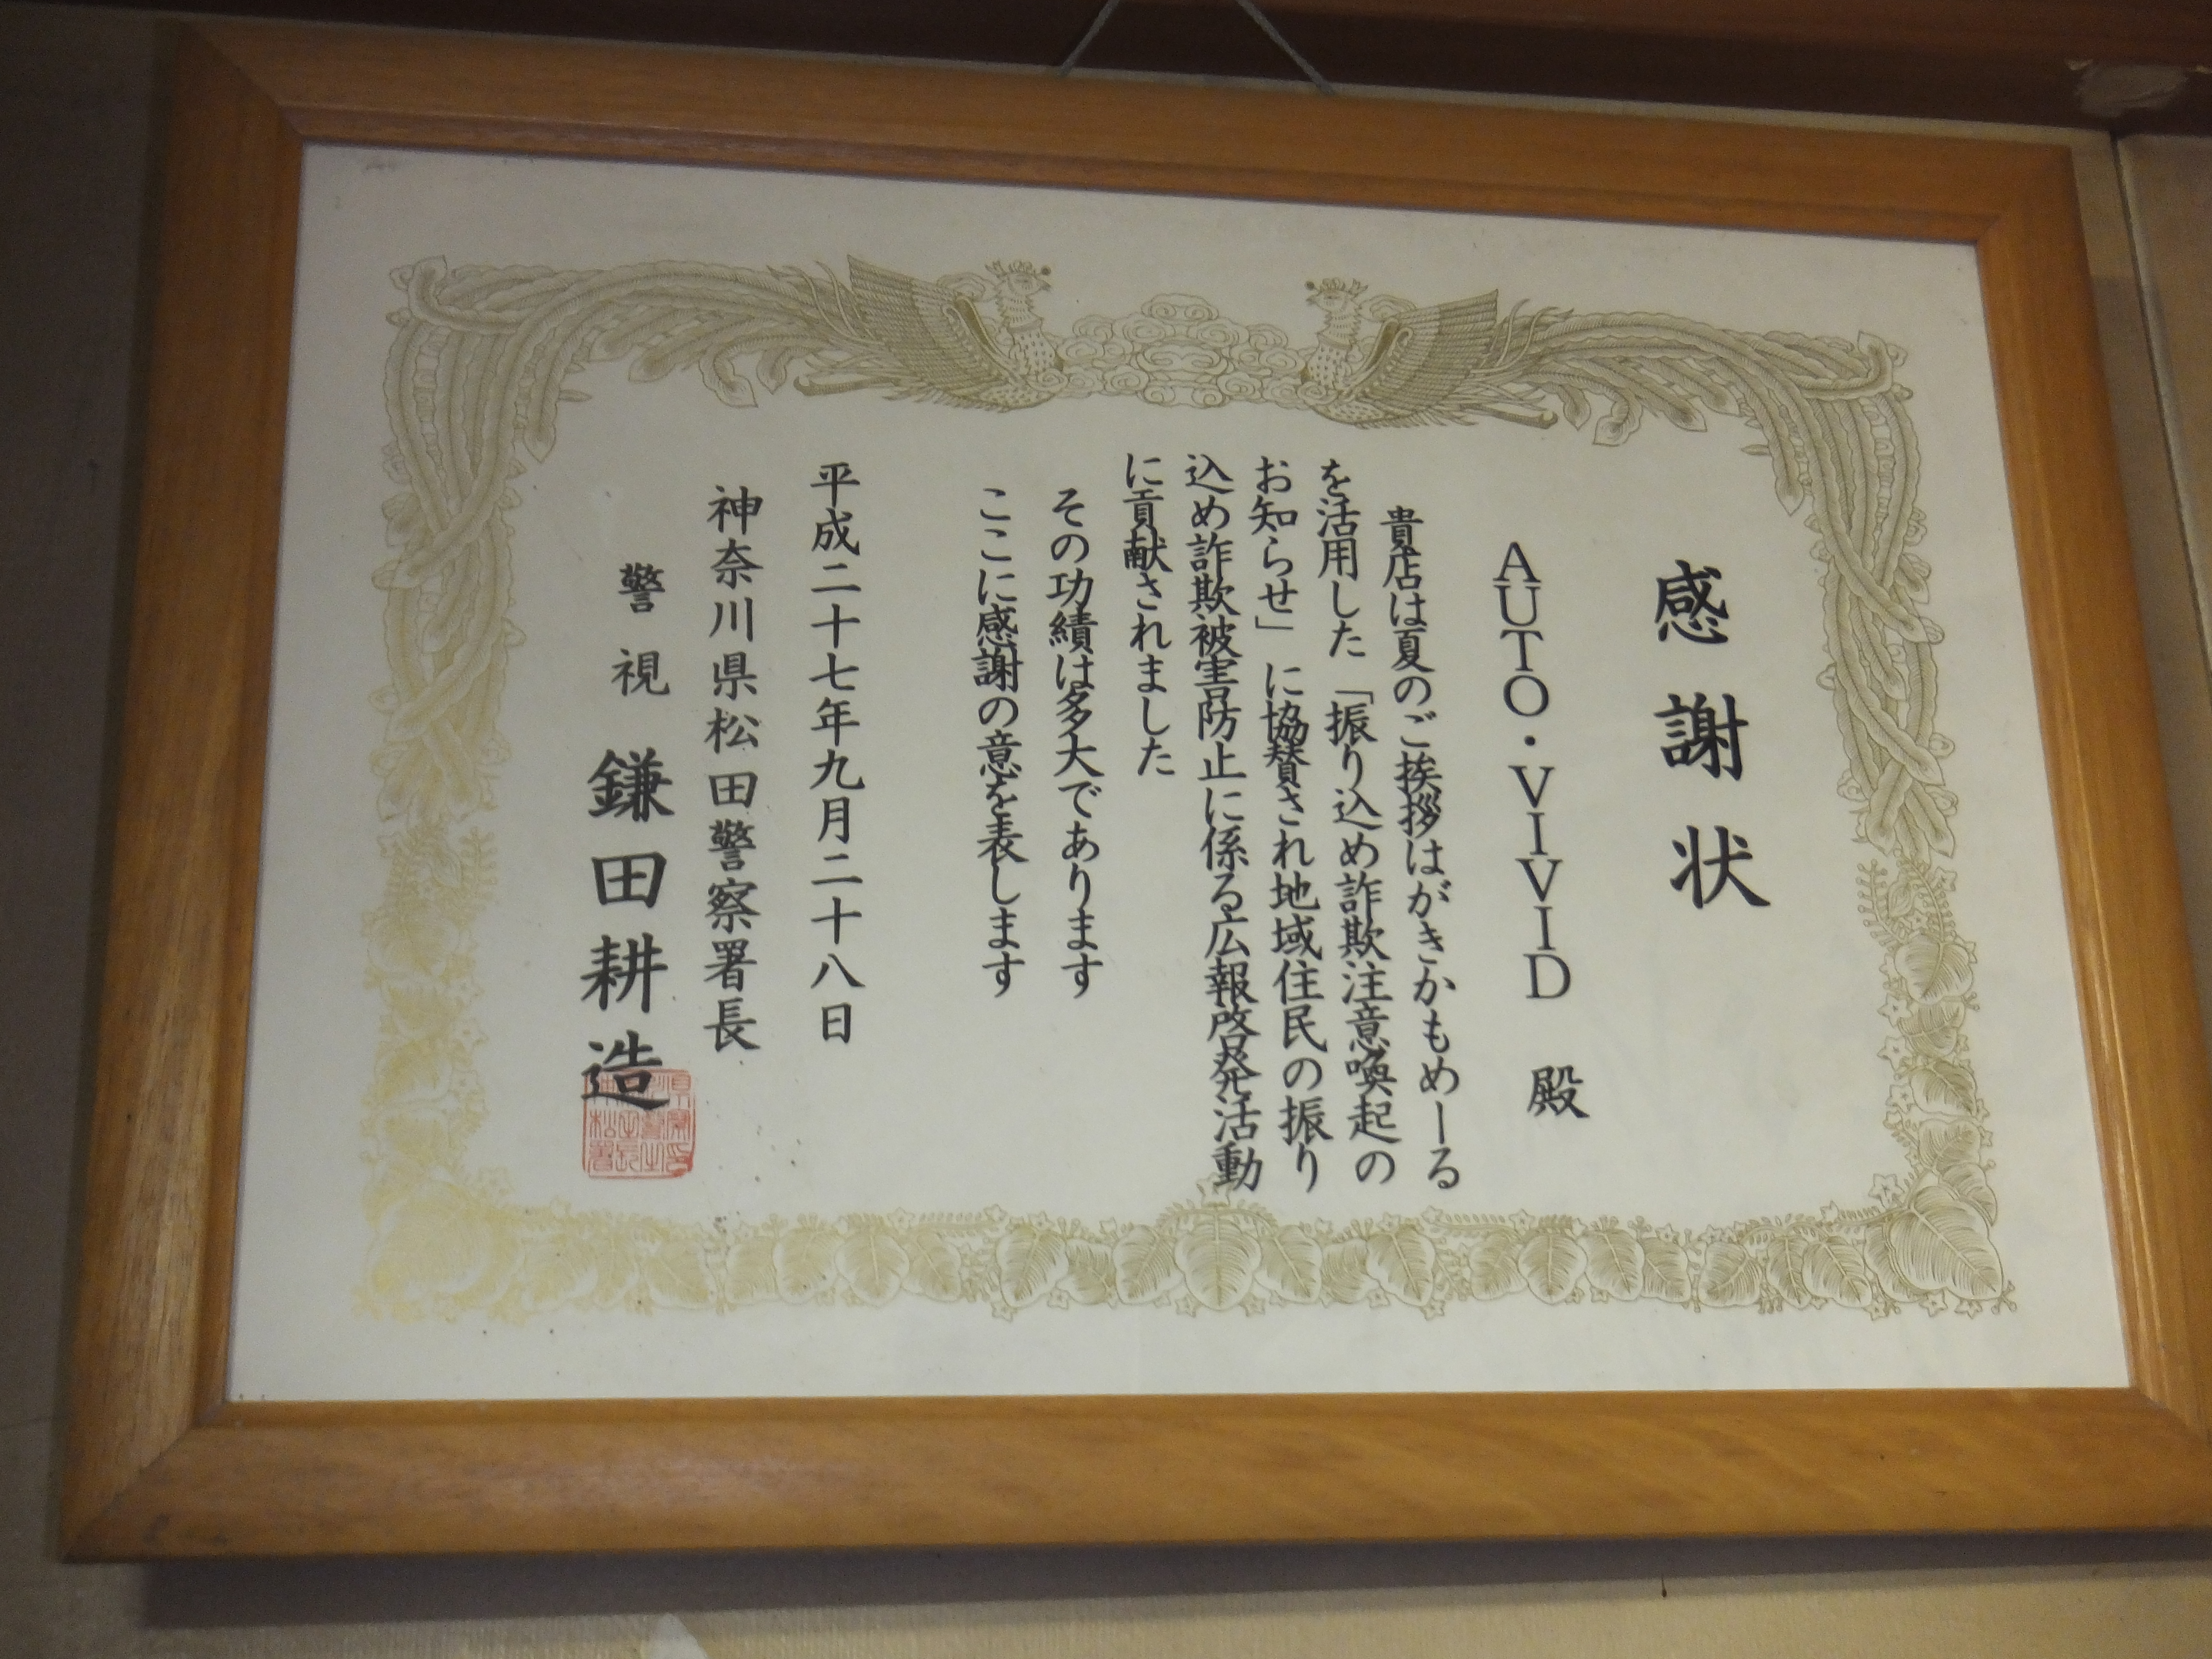 感謝状
AUTO・VIVID 殿
貴店は夏のご挨拶はがきかもめーる
を活用した「振り込め詐欺注意喚起の
お知らせ」に協賛され地域住民の振り
込め詐欺被害防止に係る広報啓発活動
に貢献されました
その功績は多大であります
ここに感謝の意を表します
平成二十七年九月二十八日
神奈川県松田警察署長
警視 鎌田耕造